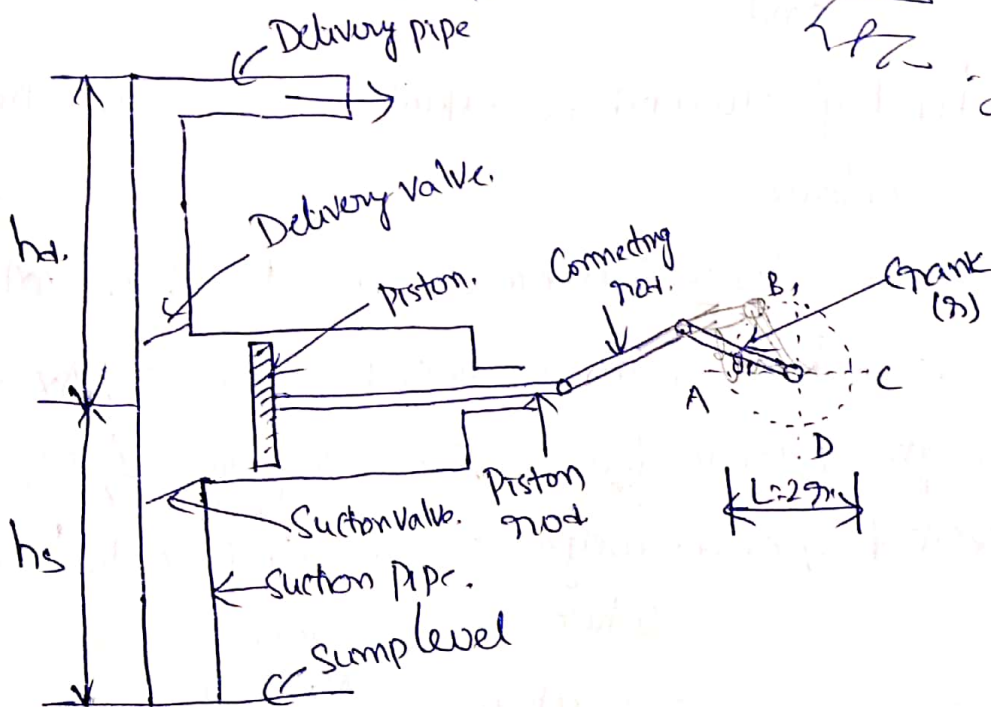 Delivery pipe
Delivery valve.
hd.
piston.
Connecting
rod.
B
Crank
(r)
A
C
D
L=2r
Piston
rod
Suction valve.
hs
suction pipe.
Sump level